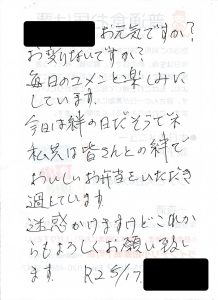 お元気ですか?
お変りないですか?
毎日のコメント楽しみに
しています。
今日は絆の日だそうです
私共は皆さんとの絆で
おいしいお弁当をいただき
過しています
迷惑かけますけどこれか
らもよろしくお願い致し
ます。 R2 5/17.